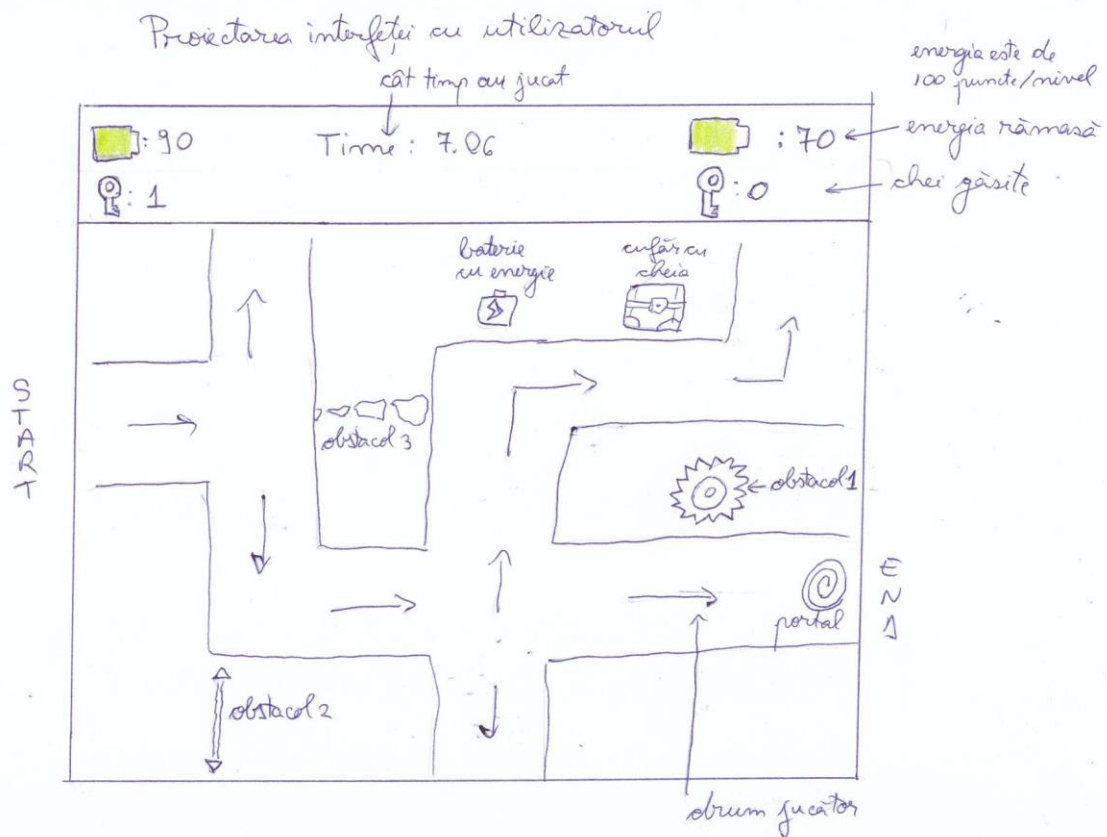 Proiectarea interfeței cu utilizatorul
cât timp au jucat
energia este de
100 puncte/nivel
: 90
Time : 7.06
: 70
energia rămasă
: 1
: 0
chei găsite
baterie
cu energie
cufăr cu
cheia
START
obstacol 3
obstacol 1
END
portal
obstacol 2
drum jucător